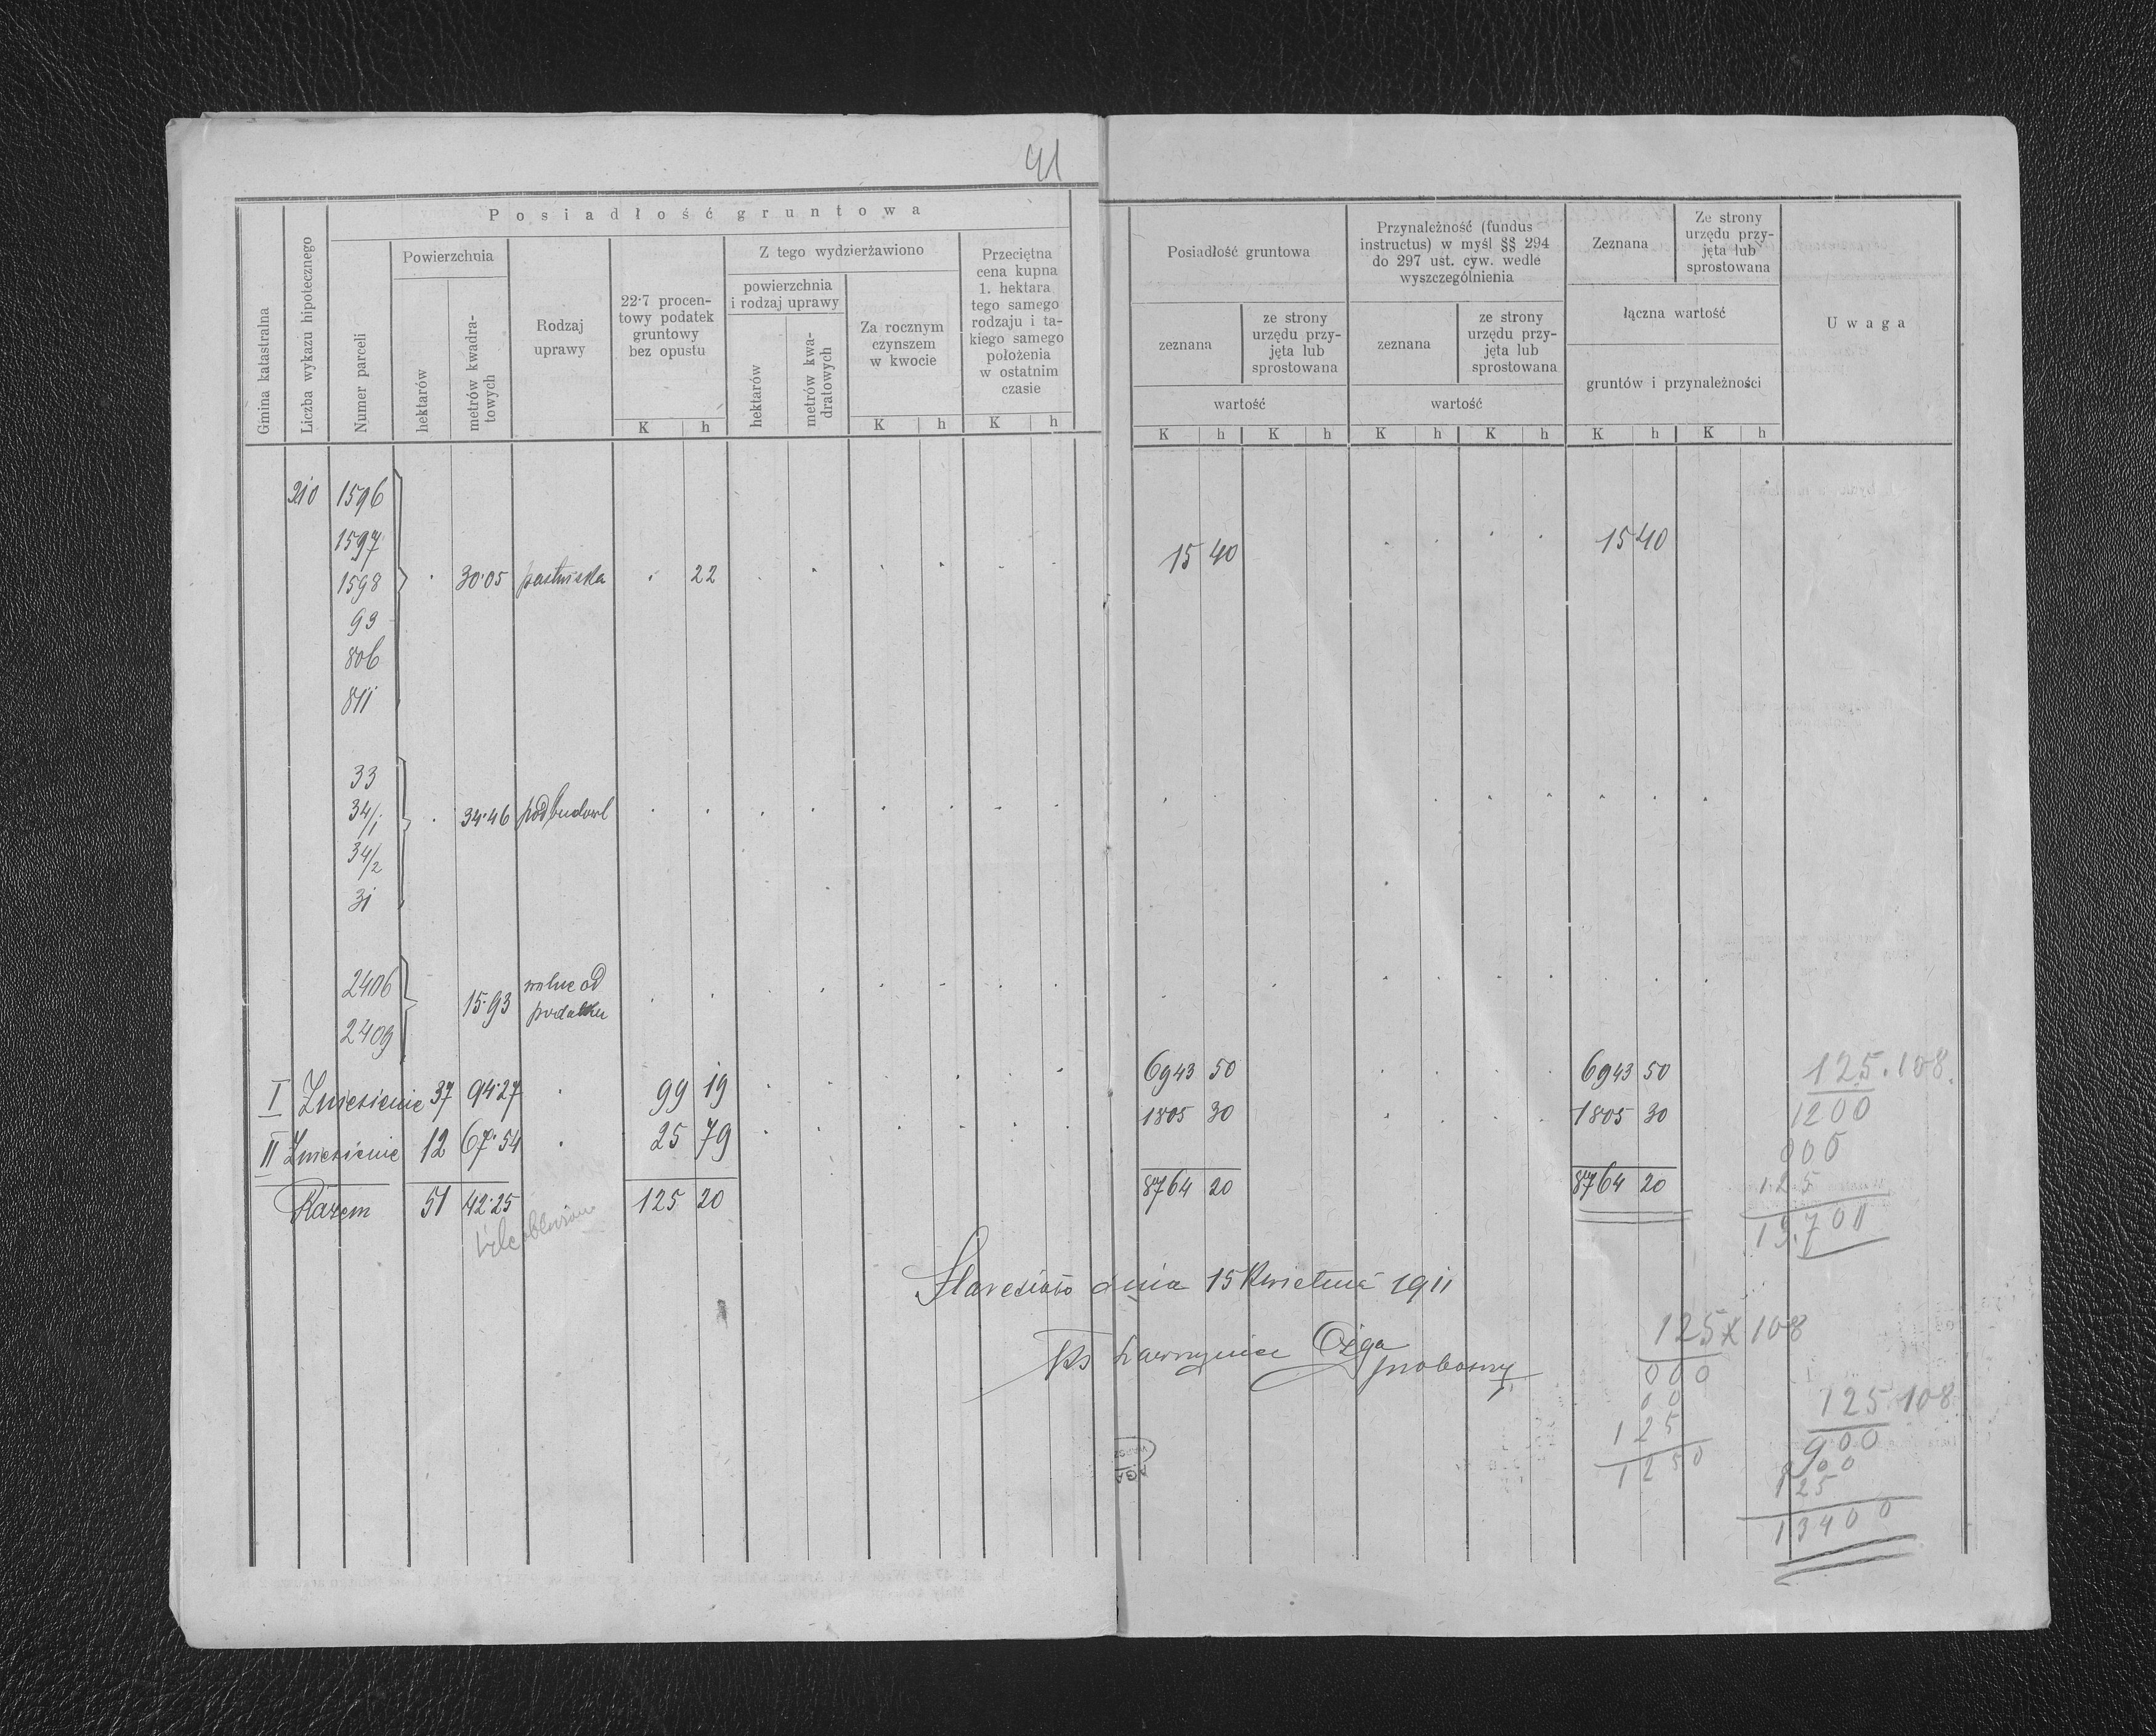 41
Posiadłość gruntowa
Gmina katastralna
Liczba wykazu hipotecznego
Numer parceli
Powierzchnia
hektarów
metrów kwadra-
towych
Rodzaj
uprawy
22·7 procen-
towy podatek
gruntowy
bez opustu
K h
Z tego wydzierżawiono
powierzchnia
i rodzaj uprawy
hektarów
metrów kwa-
dratowych
Za rocznym
czynszem
w kwocie
K h
Przeciętna
cena kupna
1. hektara
tego samego
rodzaju i ta-
kiego samego
położenia
w ostatnim
czasie
K h
Posiadłość gruntowa
zeznana
ze strony
urzędu przy-
jęta lub
sprostowana
wartość
K h K h
Przynależność (fundus
instructus) w myśl §§ 294
do 297 ust. cyw. wedle
wyszczególnienia
zeznana
ze strony
urzędu przy-
jęta lub
sprostowana
wartość
K h K h
Zeznana
Ze strony
urzędu przy-
jęta lub
sprostowana
łączna wartość
gruntów i przynależności
K h K h
Uwaga
210 1596
1597
1598 30·05 pastwiska 22 15 40 15 40
99
806
811
33
34/1 34·46 pod budowl
34/2
31
2406
15·93 wolne od
podatku
2409
I Zniesienie 37 94·27 99 19 6943 50 6943 50
II Zniesienie 12 67·54 25 79 1805 30 1805 30
Razem 51 42·25 125 20 8764 20 8764 20
125.108.
1200
000
125
13.700
Staresioło dnia 15 Kwietnia 1911
Ks Wawrzyniec Ożga
proboszcz
125 x 108
000
00
125
1250
125 108
900
00
125
13400